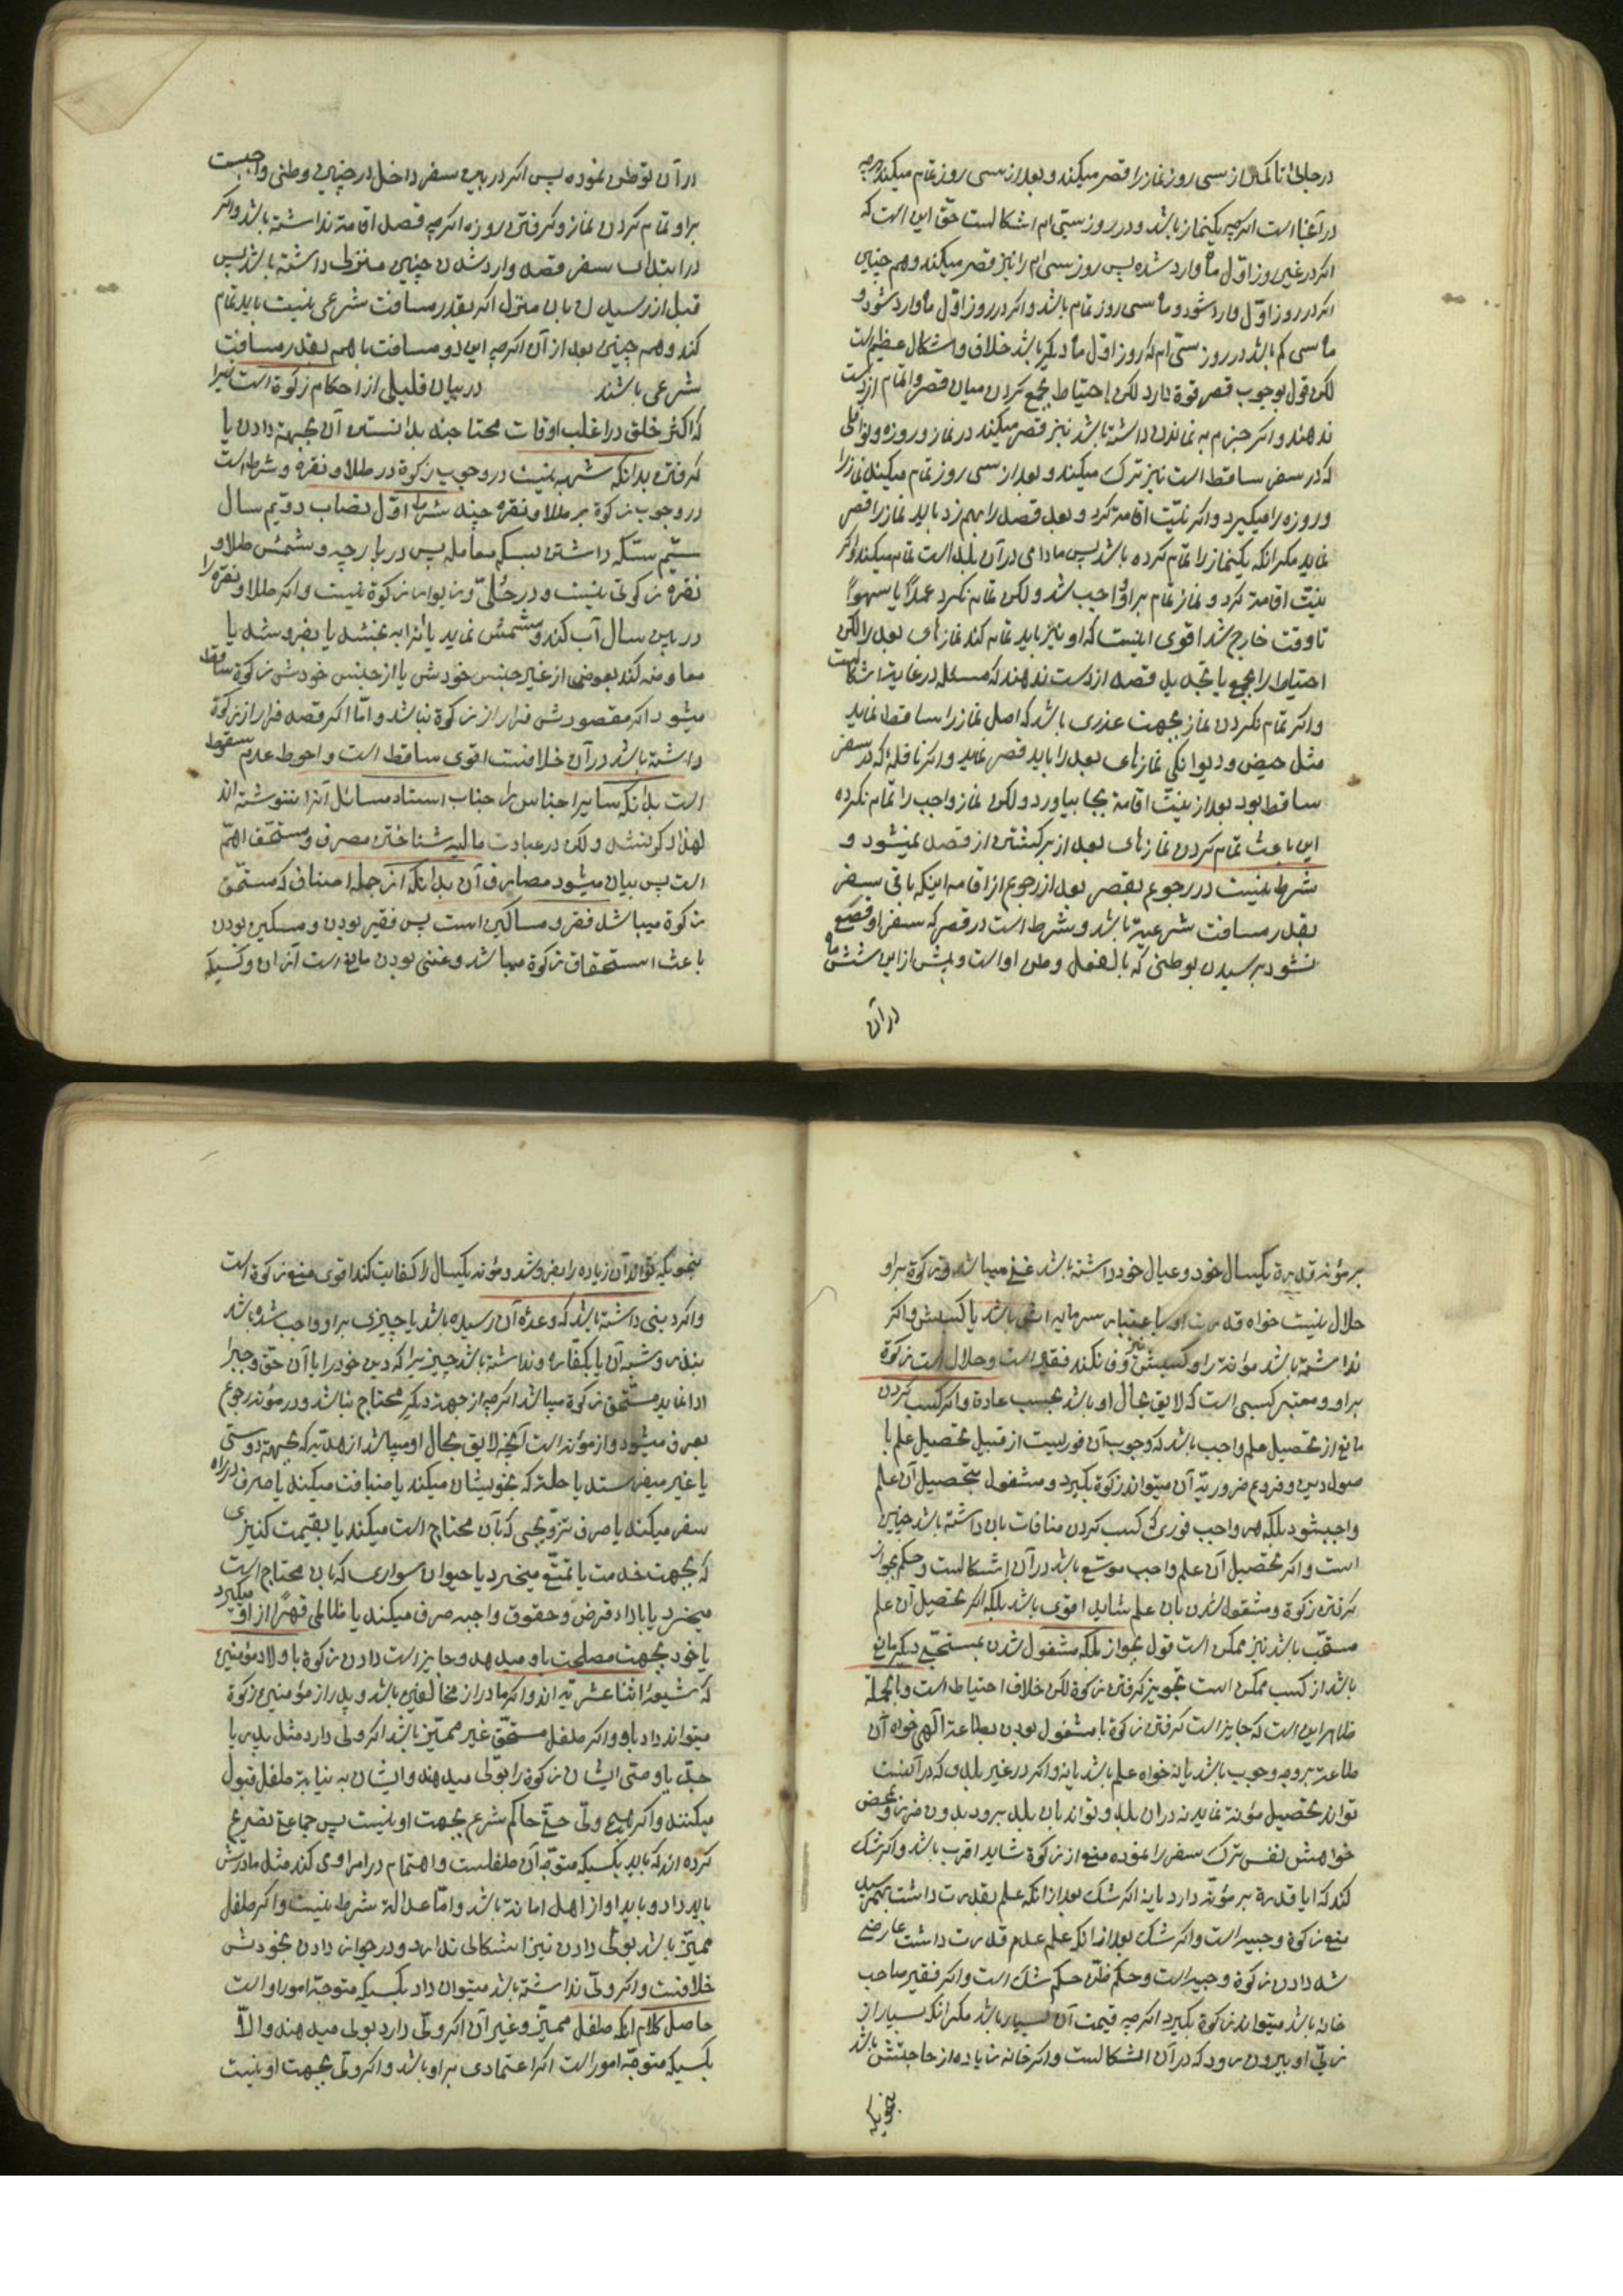 در جائی تا کمتر از سی روز نماز را قصر میکند و بعد از سی روز تمام میکند هرچه
در آنجا است اگرچه یکنماز باشد و در روز سیّ ام اشکالست حقّ این است که
اگر در غیر روز اوّل ماه وارد شده پس روز سی ام را نیز قصر میکند و هم چنین
اگر در روز اوّل وارد شود و ماه سی روز تمام باشد و اگر در روز اوّل ماه وارد شود و
ماه سی کم باشد در روز سیّ ام که روز اوّل ماه دیگر باشد خلاف و اشکال عظیم است
لکن قول بوجوب قصر قوة دارد لکن احتیاط بجمع کردن میان قصر و اتمام از دست
ندهند و اگر جزم به نماندن داشته باشد نیز قصر میکند در نماز و روزه و نوافلی
که در سفر ساقط است نیز ترک میکند و بعد از سی روز تمام میکند نماز را
و روزه را میگیرد و اگر نیّت اقامة کرد و بعد قصد را بهم زد باید نماز را قصر
نماید مگر آنکه یکنماز را تمام کرده باشد پس مادامی در آن بلد است تمام میکند و اگر
نیّت اقامة کرد و نماز تمام بر او واجب شد و لکن تمام نکرد عمداً یا سهواً
تا وقت خارج شد اقوی اینست که او نیز باید تمام کند نمازهای بعد را لکن
احتیاط را بجمع یا تجدید قصد از دست ندهند که مسئله در غایة اشکالست
و اگر تمام نکردن نماز بجهت عذری باشد که اصل نماز را ساقط نماید
مثل حیض و دیوانگی نمازهای بعد را باید قصر نماید و اگر نافلهٔ که در سفر
ساقط بود بعد از نیّت اقامة بجا بیاورد و لکن نماز واجب را تمام نکرده
این باعث تمام کردن نمازهای بعد از برگشتن از قصد نمیشود و
شرط نیست در رجوع بقصر بعد از رجوع از اقامه اینکه باقی سفر
بقدر مسافت شرعیة باشد و شرط است در قصر که سفر او قطع
نشود برسیدن بوطنی که بالفعل وطن او است و پیش از این شش ماه
در آن
در آن توطّن نموده پس اگر در بین سفر داخل در چنین وطنی واجبست
بر او تمام کردن نماز و گرفتن روزه اگرچه قصد اقامة نداشته باشد و اگر
در ابتدای سفر قصد وارد شدن چنین منزلی داشته باشد پس
قبل از رسیدن بان منزل اگر بقدر مسافت شرعی نیست باید تمام
کند و هم چنین بعد از آن اگرچه این دو مسافت با هم بقدر مسافت
شرعی باشند در بیان قلیلی از احکام زکوة است زیرا
که اکثر خلق در اغلب اوقات محتاجند بدانستن آن بجهة دادن یا
گرفتن بدانکه شبهه نیست در وجوب زکوة در طلا و نقره و شرط است
در وجوب زکوة بر طلا و نقره چند شرط اوّل نصاب دویم سال
سیّم سکّه داشتن بسکه معامله پس در پارچه و شمش طلا و
نقره زکوتی نیست و در حُلیّ و زیور زکوة نیست و اگر طلا و نقره را
در بین سال آب کند و شمش نماید یا آنرا به بخشد یا بفروشد یا
معاوضه کند بعوضی از غیر جنس خودش یا از جنس خودش زکوة ساقط
میشود اگر مقصودش فرار از زکوة نباشد و امّا اگر قصد فرار از زکوة
داشته باشد در آن خلافست اقوی ساقط است و احوط عدم سقوط
است بدانکه سایر اجناس را جناب استاد مسائل آنرا ننوشته اند
لهذا ذکر نشد و لکن در عبادت مالیه شناختن مصرف و مستحق اهمّ
است پس بیان میشود مصارف آن بدانکه از جمله اصناف که مستحق
زکوة میباشد فقر و مساکین است پس فقیر بودن و مسکین بودن
باعث استحقاق زکوة میباشد و غنی بودن مانع است از آن و کسیکه
بر مؤنه قدرة یکسال خود و عیال خود داشته باشد غنی میباشد و زکوة بر او
حلال نیست خواه قدرت او باعتبار سرمایه اش باشد یا کسبش و اگر
نداشته باشد مؤنة را و کسبش نیز وفا نکند فقیر است و حلال است زکوة
بر او و معتبر کسبی است که لایق بحال او باشد بحسب عادة و اگر کسب کردن
مانع از تحصیل علم واجب باشد که وجوب آن فوریست از قبیل تحصیل علم با
صول دین و فروع ضروریّه آن میتواند زکوة بگیرد و مشغول بتحصیل آن علم
واجب شود بلکه هر واجب فوری که کسب کردن منافات بان داشته باشد چنین
است و اگر تحصیل آن علم واجب موسّع باشد در آن اشکالست و حکم بجواز
گرفتن زکوة و مشغول شدن بان علم شاید اقوی باشد بلکه اگر تحصیل آن علم
مستحّب باشد نیز ممکن است قول بجواز بلکه مشغول شدن بمستحبّی دیگر مانع
باشد از کسب ممکن است تجویز گرفتن زکوة لکن خلاف احتیاط است و بالجملة
ظاهر این است که جایز است گرفتن زکوة با مشغول بودن بطاعة آلهی خواه آن
طاعة بر وجه وجوب باشد یا نه خواه علم باشد یا نه و اگر در غیر بلدی که در آنست
تواند تحصیل مؤنة نماید نه در ان بلد و تواند بان بلد برود بدون ضرر و بمحض
خواهش نفس ترک سفر را نموده منع از زکوة شاید اقرب باشد و اگر شک
کند که ایا قدرة بر مؤنه دارد یا نه اگر شک بعد از انکه علم بقدرت داشت بهمرسید
منع زکوة وجیه است و اگر شک بعد از انکه علم عدم قدرت داشت عارض
شد دادن زکوة وجیه است و حکم ظنّ حکم شک است و اگر فقیر صاحب
خانه باشد میتواند زکوة بگیرد اگرچه قیمت آن بسیار باشد مگر انکه بسیار از
زیّ او بیرون رود که در آن اشکالست و اگر خانه زیاده از حاجتش باشد
بنحویکه
بنحویکه تواند آن زیاده را بفروشد و مؤنه یکسال را کفایت کند اقوی منع زکوة است
و اگر دینی داشته باشد که وعدهٔ آن رسیده باشد یا چیزی بر او واجب شده باشد
بنذر و شبه آن یا بکفاره و نداشته باشد چیزیرا که دین خود را یا آن حقّ واجبرا
ادا نماید مستحّق زکوة میباشد اگرچه از جهة دیگر محتاج نباشد و در مؤنه رجوع
بعرف میشود و از مؤنه است آنچه لایق بحال او میباشد از هدیّه که بجهة دوستی
یا غیر میفرستد یا صله که بخویشان میکند یا ضیافت میکند یا صرف در راه
سفر میکند یا صرف تزویجی که بآن محتاج است میکند یا بقیمت کنیزی
که بجهت خدمت یا تمتّع میخرد یا حیوان سواری که بان محتاج است
میخرد یا باداء قرض و حقوق واجبه صرف میکند یا ظالمی قهراً از او میگیرد
یا خود بجهت مصلحت باو میدهد و جایز است دادن زکوة باولاد مؤمنین
که شیعهٔ اثنا عشریّه اند و اگر مادر از مخالفین باشد و پدر از مؤمنین زکوة
میتواند داد باو و اگر طفل مستحّق غیر ممیّز باشد اگر ولی دارد مثل پدر یا
جدّ یا وصی ایشان زکوة را بولی میدهند و ایشان به نیابة طفل قبول
میکنند و اگر هیچ ولی حتّی حاکم شرع بجهت او نیست پس جماعة تصریح
کرده اند که باید بکسیکه متوجّه آن طفلست و اهتمام در امر او می کند مثل مادرش
باید داد و باید او از اهل امانة باشد و امّا عدالة شرط نیست و اگر طفل
ممیّز باشد بولّی دادن نیز اشکالی ندارد و در جواز دادن بخودش
خلافست و اگر ولّی نداشته باشد میتوان داد بکسیکه متوجّه امور او است
حاصل کلام آنکه طفل ممیّز و غیر آن اگر ولّی دارد بولی میدهند و الاّ
بکسیکه متوجّه امور است اگر اعتمادی بر او باشد و اگر ولّی بجهت او نیست